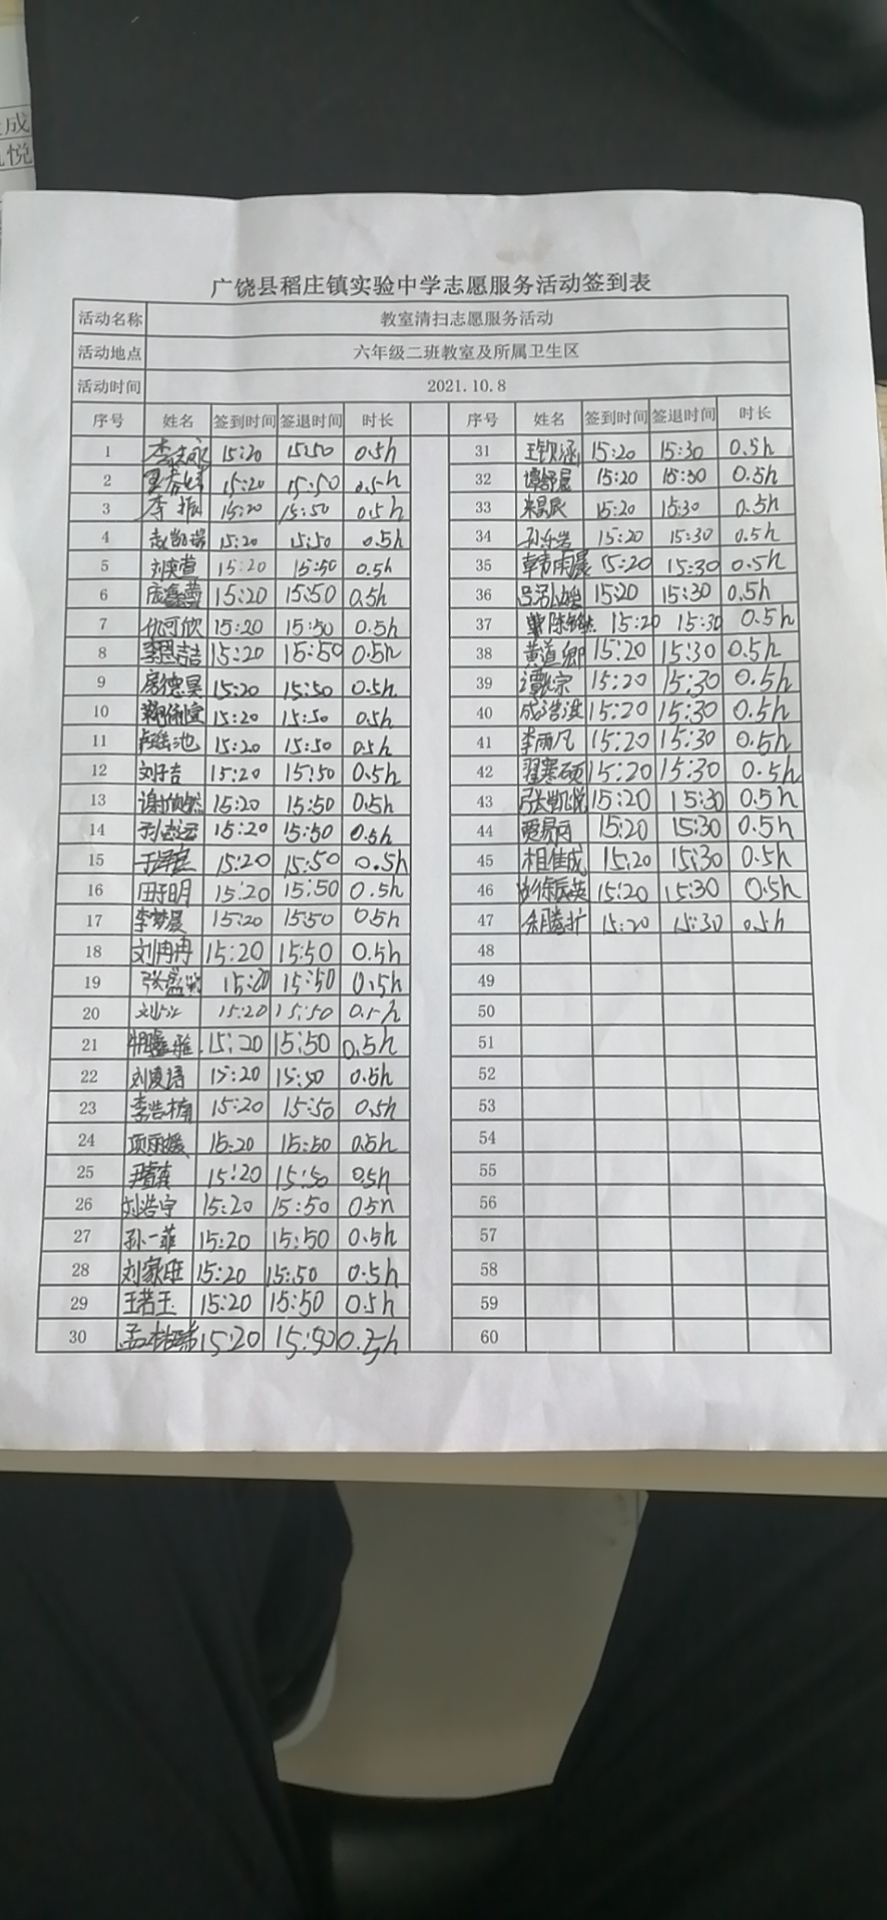 成
悦
广饶县稻庄镇实验中学志愿服务活动签到表
活动名称 教室清扫志愿服务活动
活动地点 六年级二班教室及所属卫生区
活动时间 2021.10.8
序号 姓名 签到时间 签退时间 时长 序号 姓名 签到时间 签退时间 时长
1 15:20 15:50 0.5h 31 王钦涵 15:20 15:30 0.5h
2 15:20 15:50 0.5h 32 谭舒晨 15:20 15:30 0.5h
3 李振 15:20 15:50 0.5h 33 15:20 15:30 0.5h
4 赵凯瑞 15:20 15:50 0.5h 34 孙乐岩 15:20 15:30 0.5h
5 刘奕萱 15:20 15:50 0.5h 35 韩雨晨 15:20 15:30 0.5h
6 15:20 15:50 0.5h 36 15:20 15:30 0.5h
7 仇可欣 15:20 15:50 0.5h 37 15:20 15:30 0.5h
8 李思洁 15:20 15:50 0.5h 38 黄道卿 15:20 15:30 0.5h
9 房德昊 15:20 15:50 0.5h 39 15:20 15:30 0.5h
10 15:20 15:50 0.5h 40 成浩洪 15:20 15:30 0.5h
11 15:20 15:50 0.5h 41 李雨凡 15:20 15:30 0.5h
12 刘子吉 15:20 15:50 0.5h 42 翟寒硕 15:20 15:30 0.5h
13 谢欣然 15:20 15:50 0.5h 43 张凯悦 15:20 15:30 0.5h
14 15:20 15:50 0.5h 44 贾易函 15:20 15:30 0.5h
15 15:20 15:50 0.5h 45 相佳成 15:20 15:30 0.5h
16 田子明 15:20 15:50 0.5h 46 15:20 15:30 0.5h
17 李梦晨 15:20 15:50 0.5h 47 15:20 15:30 0.5h
18 刘冉冉 15:20 15:50 0.5h 48
19 15:20 15:50 0.5h 49
20 15:20 15:50 0.5h 50
21 15:20 15:50 0.5h 51
22 刘凌语 15:20 15:50 0.5h 52
23 李浩楠 15:20 15:50 0.5h 53
24 项丽媛 15:20 15:50 0.5h 54
25 15:20 15:50 0.5h 55
26 刘浩宇 15:20 15:50 0.5h 56
27 孙一菲 15:20 15:50 0.5h 57
28 刘家旺 15:20 15:50 0.5h 58
29 王若玉 15:20 15:50 0.5h 59
30 15:20 15:50 0.5h 60